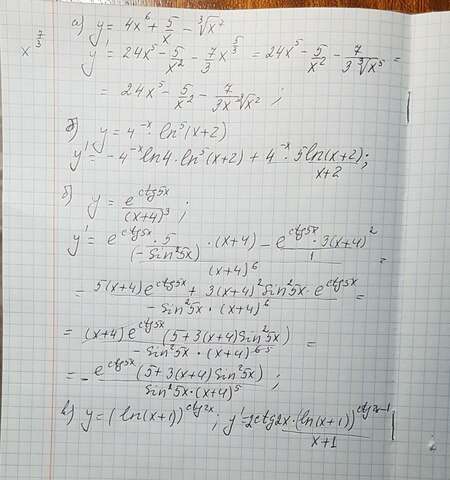 x^(7/3)
а) y = 4x^6 + 5/x - ∛x^7
y' = 24x^5 - 5/x^2 - 7/3 x^(5/3) = 24x^5 - 5/x^2 - 7/(3 ∛x^5) =
= 24x^5 - 5/x^2 - 7/(3x ∛x^2) ;
г) y = 4^(-x) · ln^5(x+2)
y' = -4^(-x) ln4 · ln^5(x+2) + 4^(-x) · 5ln(x+2)/(x+2) ;
б) y = e^(ctg5x)/(x+4)^3 ;
y' = (e^(ctg5x) · 5/(-sin^2 5x) · (x+4) - e^(ctg5x) · 3(x+4)^2/1)/(x+4)^6 =
= (5(x+4)e^(ctg5x) + 3(x+4)^2 sin^2 5x · e^(ctg5x))/(-sin^2 5x · (x+4)^6) =
= ((x+4)e^(ctg5x) (5+3(x+4) sin^2 5x))/(-sin^2 5x · (x+4)^(6 5)) =
= - (e^(ctg5x) (5+3(x+4) sin^2 5x))/(sin^2 5x · (x+4)^5) ;
в) y = (ln(x+1))^(ctg2x) ; y' = 2ctg2x · (ln(x+1))^(ctg2x-1)/(x+1)